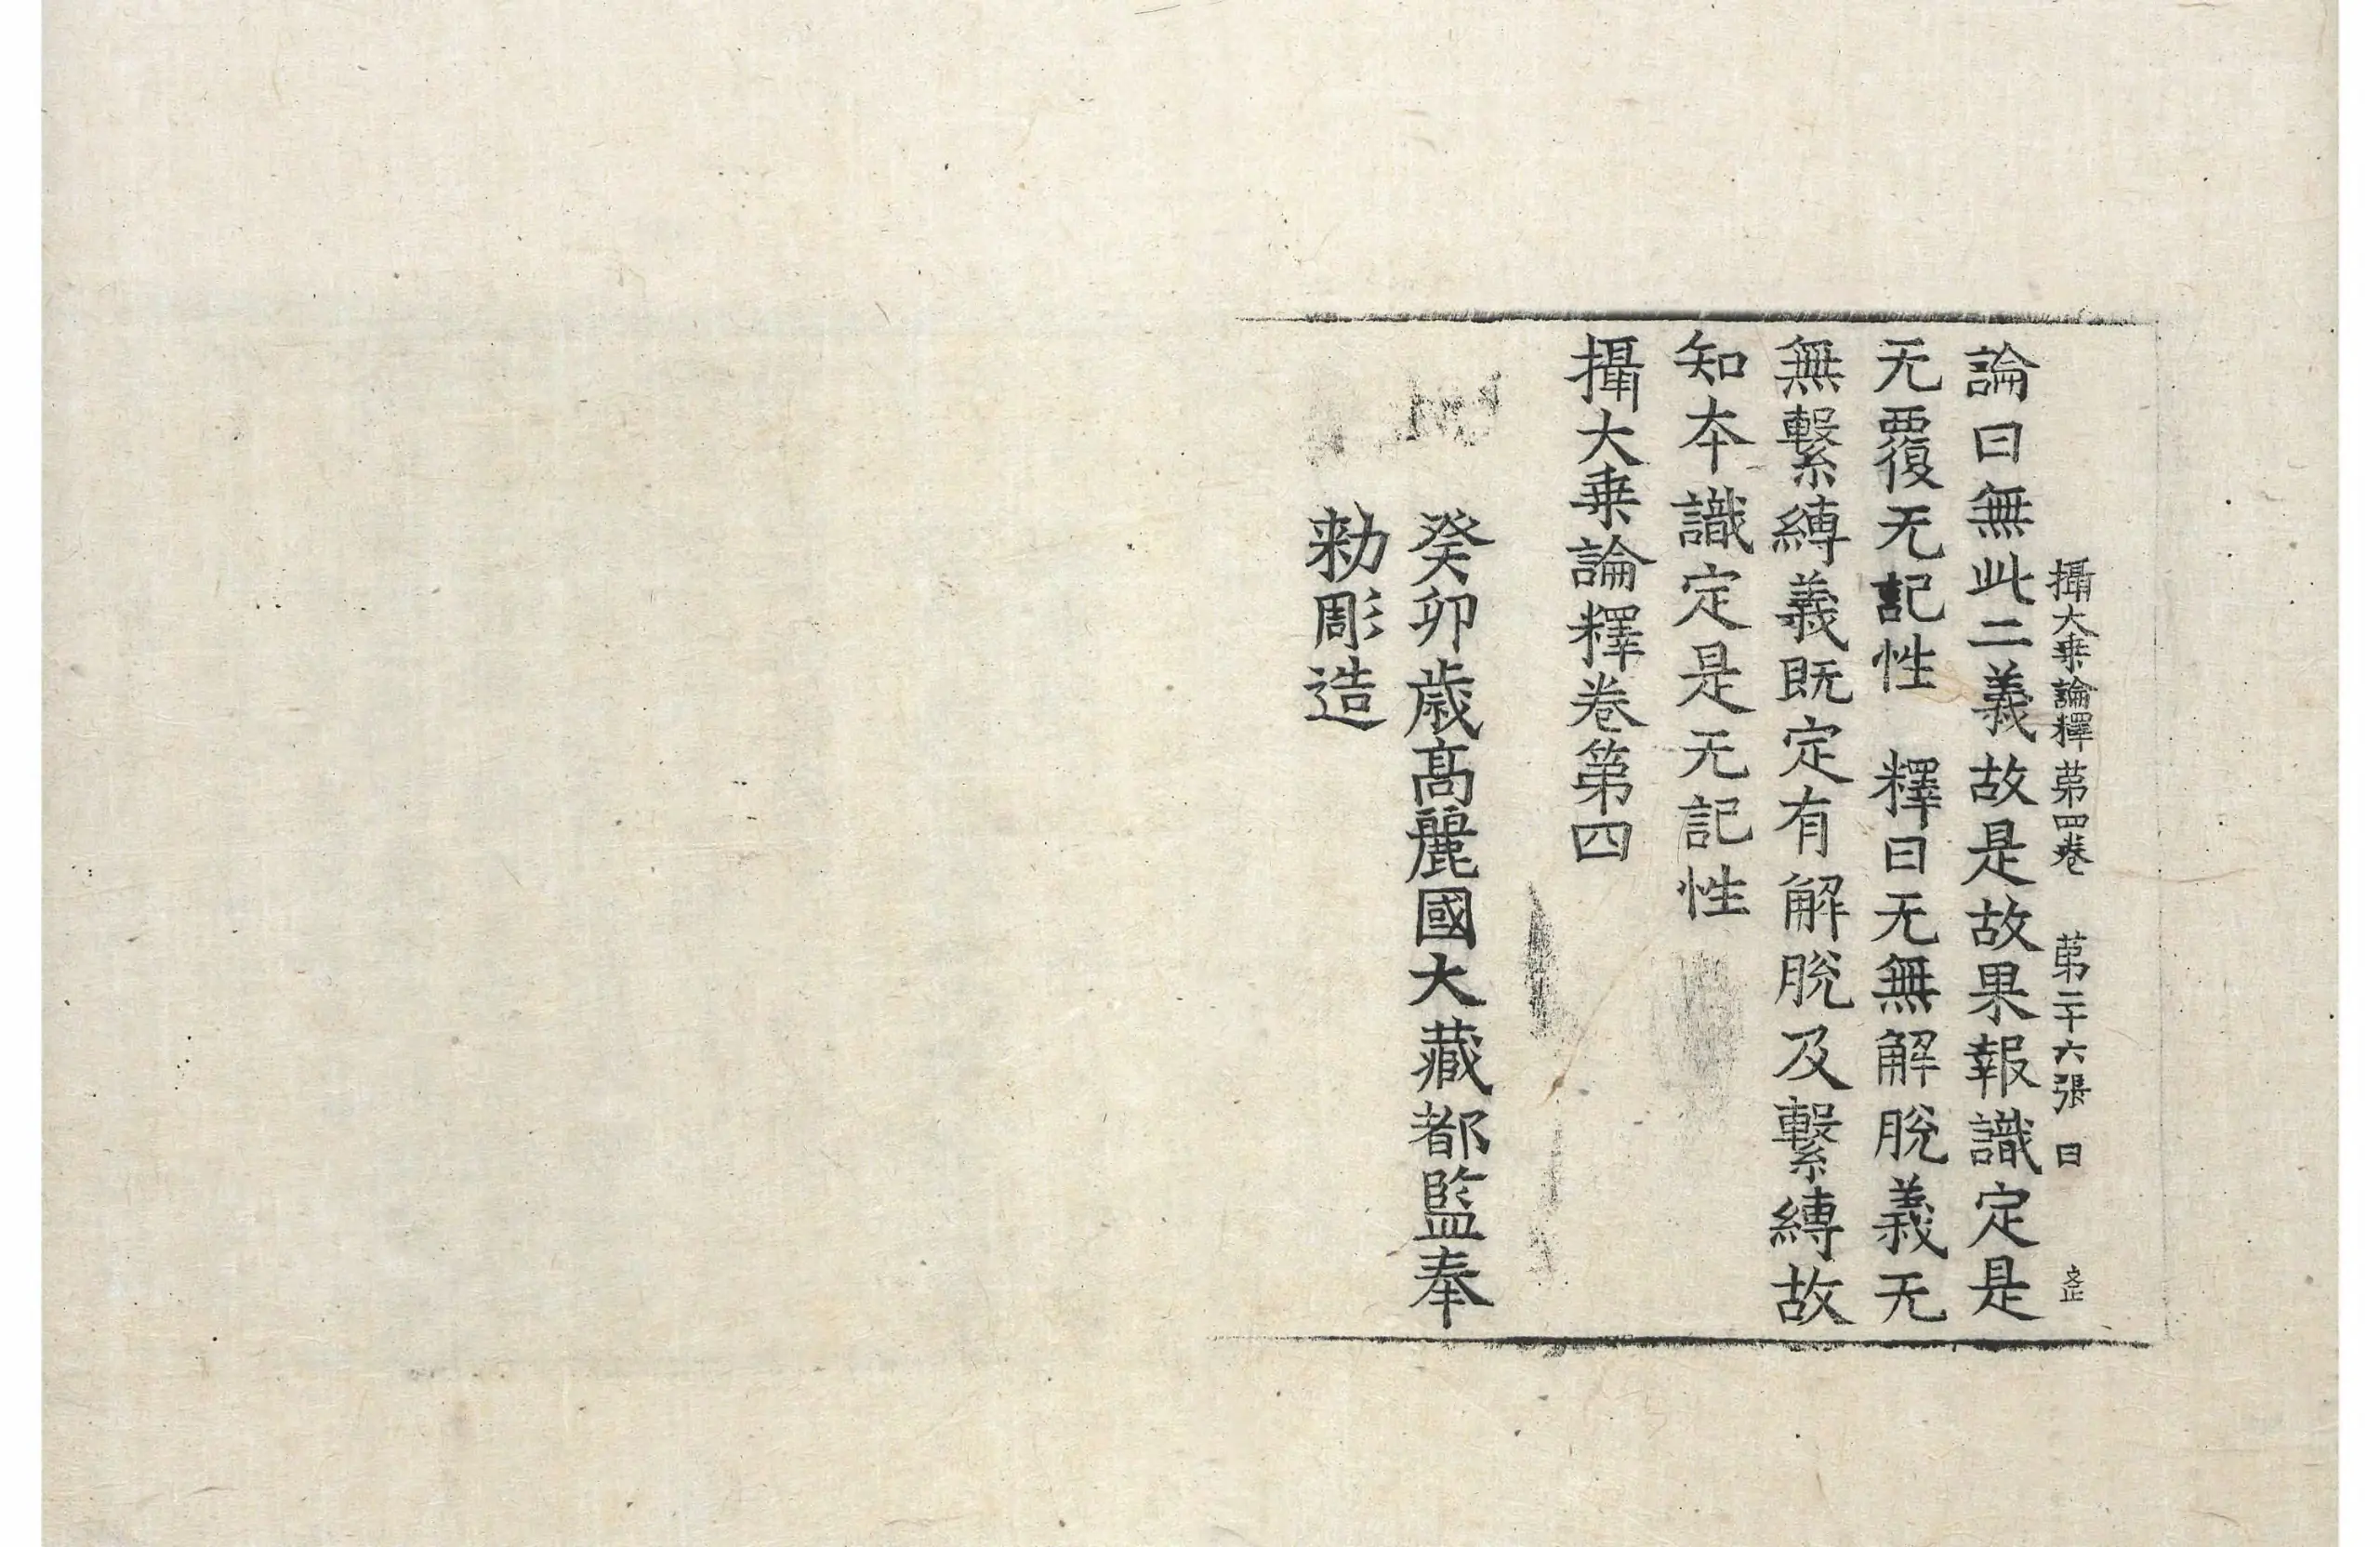 攝大乗論釋苐四卷 苐二十六張 曰
論曰無此二義故是故果報識定是
无覆无記性 釋曰无無解脫義无
無繫縛義既定有解脫及繫縛故
知夲識定是无記性
攝大乗論釋卷第四
癸卯歳髙麗國大藏都監奉
勑彫造